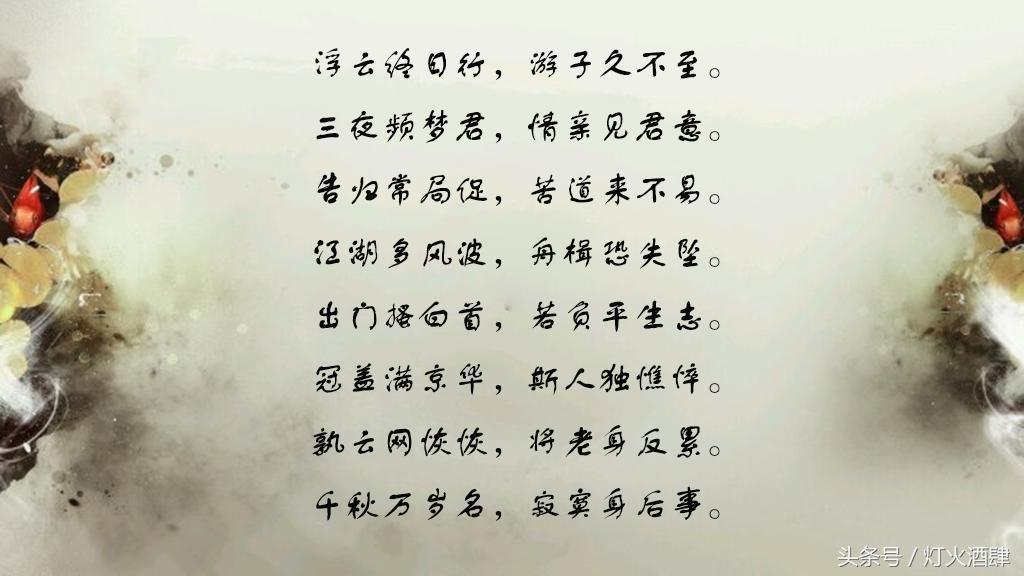 浮云终日行，游子久不至。
三夜频梦君，情亲见君意。
告归常局促，苦道来不易。
江湖多风波，舟楫恐失坠。
出门搔白首，若负平生志。
冠盖满京华，斯人独憔悴。
孰云网恢恢，将老身反累。
千秋万岁名，寂寞身后事。
头条号 / 灯火酒肆